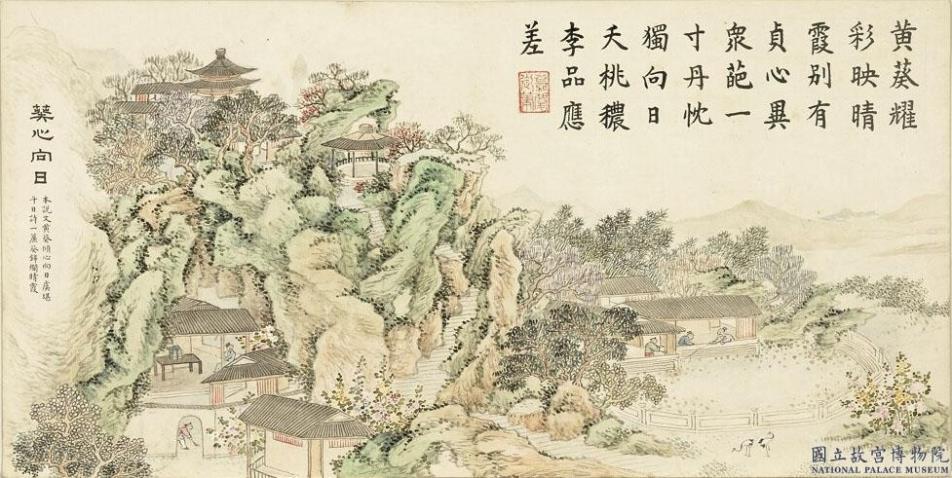 黃葵耀
彩映晴
霞别有
貞心異
衆葩一
寸丹忱
獨向日
夭桃穠
李品應
差
葵心向日
本説文黃葵傾心向日虞堪
千日詩一叢葵錦爛晴霞
國立故宮博物院
NATIONAL PALACE MUSEUM